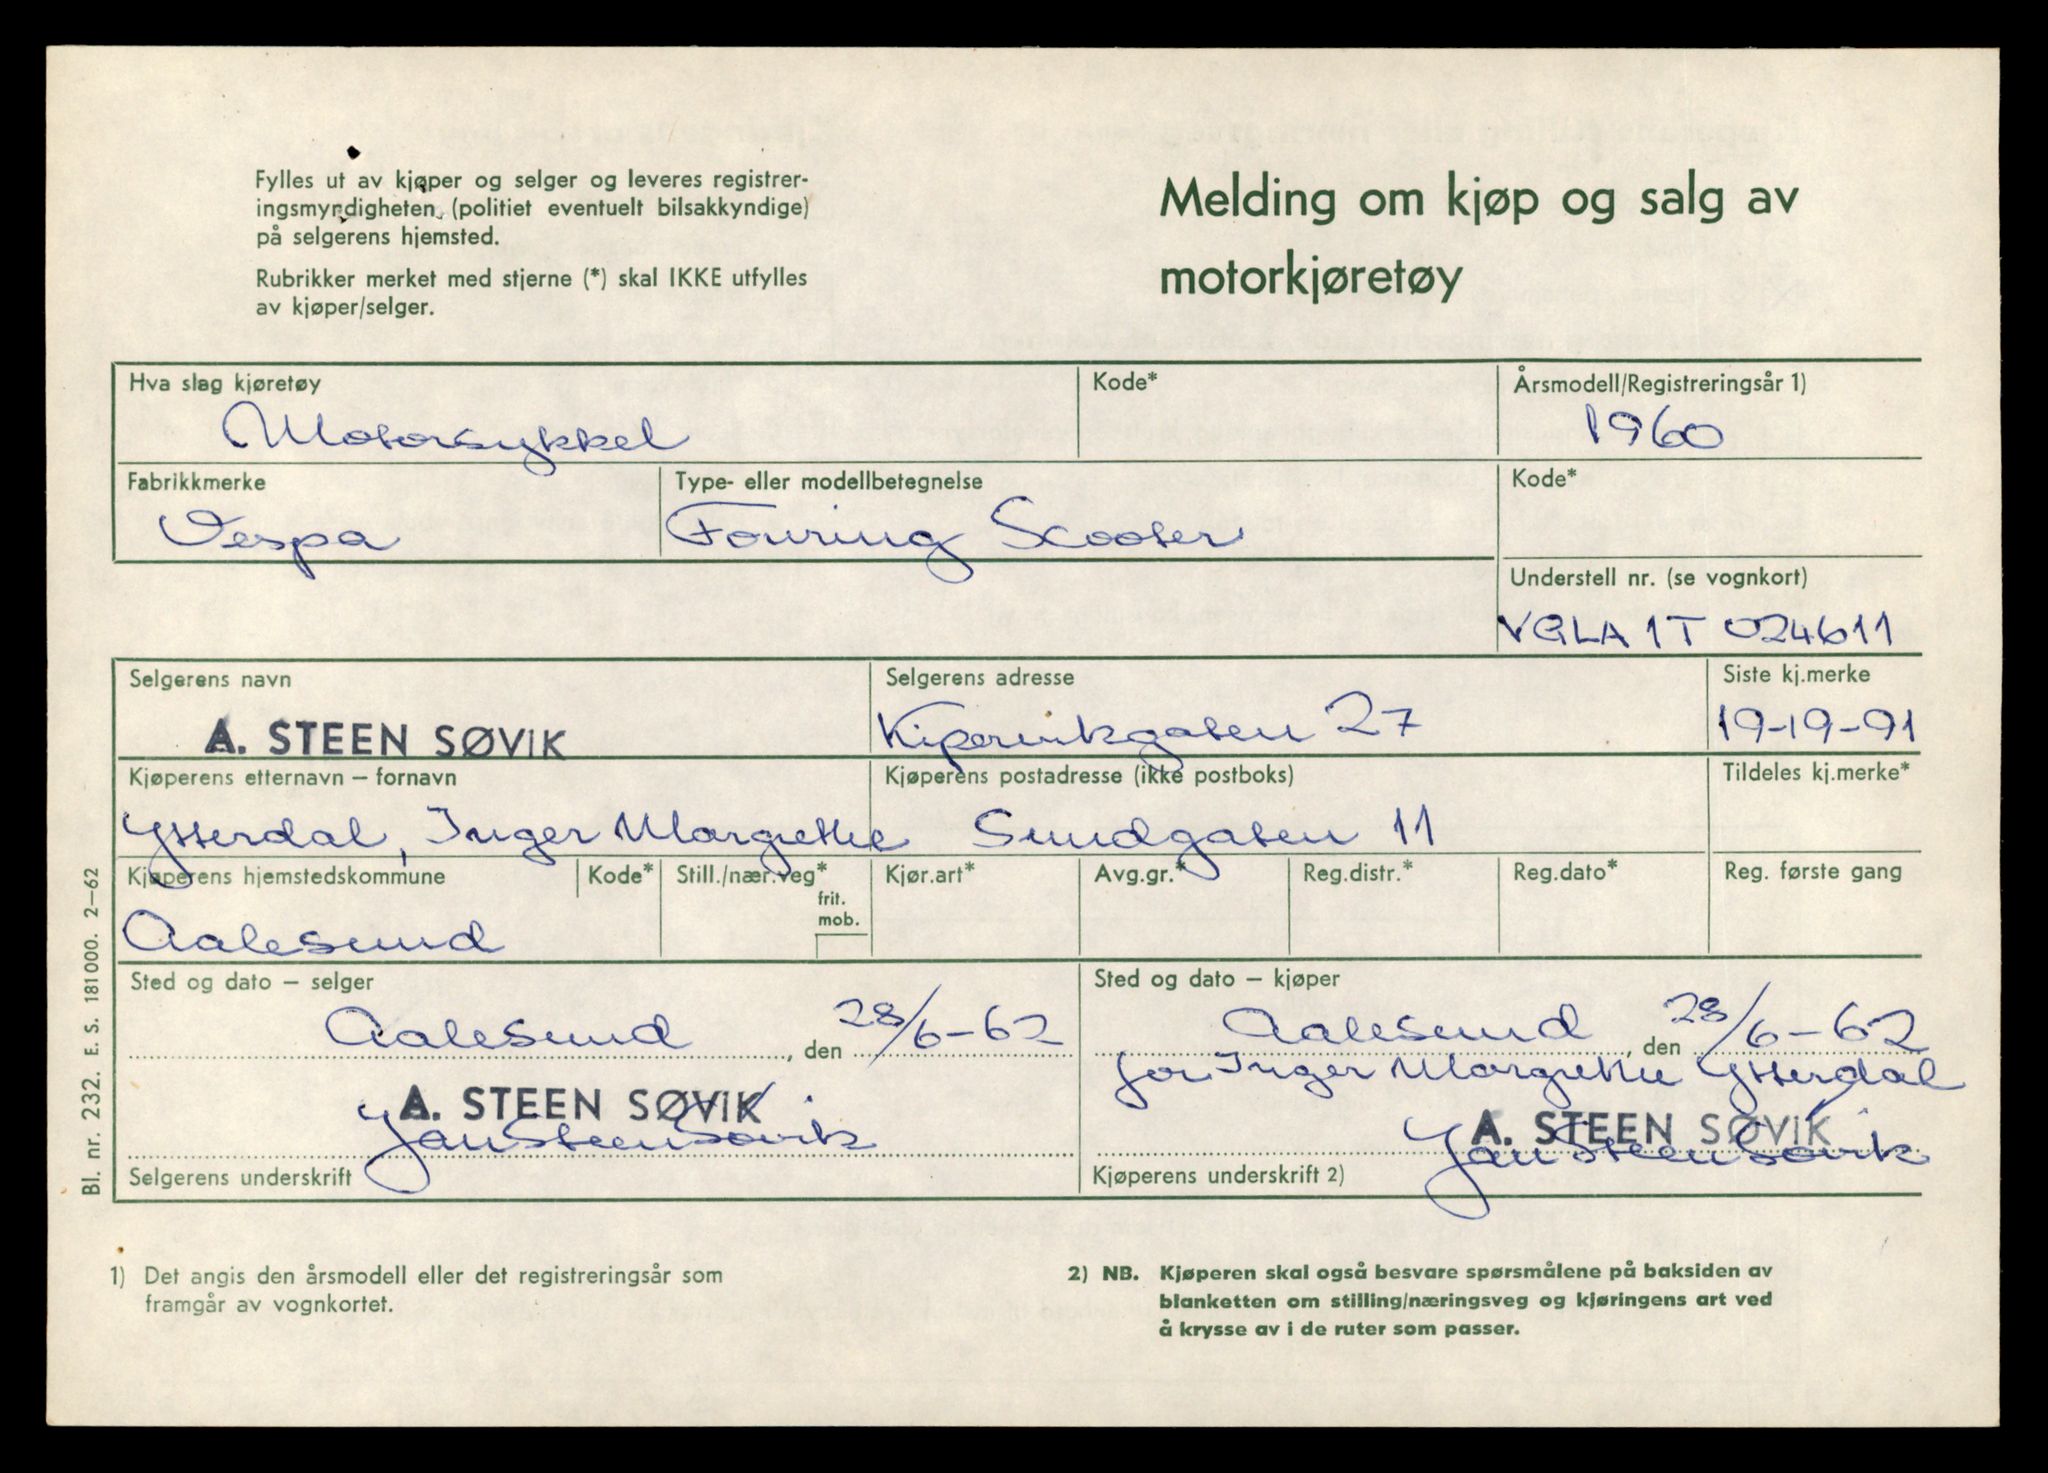 Fylles ut av kjøper og selger og leveres registrer-
ingsmyndigheten (politiet eventuelt bilsakkyndige)
på selgerens hjemsted.
Rubrikker merket med stjerne (*) skal IKKE utfylles
av kjøper/selger.
Melding om kjøp og salg av
motorkjøretøy
Hva slag kjøretøy
Motorsykkel
Kode*
Årsmodell/Registreringsår 1)
1960
Fabrikkmerke
Vespa
Type- eller modellbetegnelse
Touring Scooter
Kode*
Understell nr. (se vognkort)
VGLA 1T 024611
Selgerens navn
A. STEEN SØVIK
Selgerens adresse
Kipervikgaten 27
Siste kj.merke
19-19-91
Kjøperens etternavn – fornavn
Ytterdal, Inger Margrethe
Kjøperens postadresse (ikke postboks)
Sundgaten 11
Tildeles kj.merke*
Kjøperens hjemstedskommune
Aalesund
Kode*
Still./nær.veg*
frit.
mob.
Kjør.art*
Avg.gr.*
Reg.distr.*
Reg.dato*
Reg. første gang
Sted og dato – selger
Aalesund, den 28/6-62
A. STEEN SØVIK
Jan Steen Søvik
Selgerens underskrift
Sted og dato – kjøper
Aalesund, den 28/6-62
for Inger Margrethe Ytterdal
A. STEEN SØVIK
Jan Steen Søvik
Kjøperens underskrift 2)
Bl. nr. 232. E. S. 181000. 2–62
1) Det angis den årsmodell eller det registreringsår som
framgår av vognkortet.
2) NB. Kjøperen skal også besvare spørsmålene på baksiden av
blanketten om stilling/næringsveg og kjøringens art ved
å krysse av i de ruter som passer.